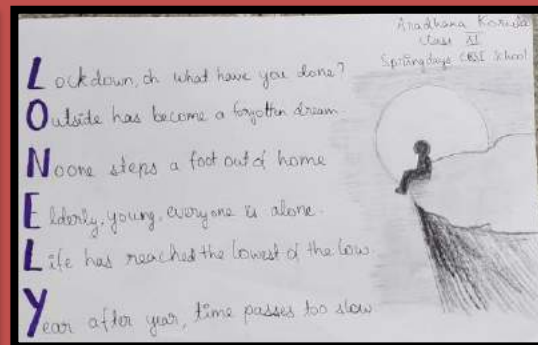 Aradhana Korula
Class XI
Springdays CBSE School
Lockdown, oh what have you done?
Outside has become a forgotten dream
Noone steps a foot out of home
Elderly, young, everyone is alone.
Life has reached the lowest of the low.
Year after year, time passes too slow